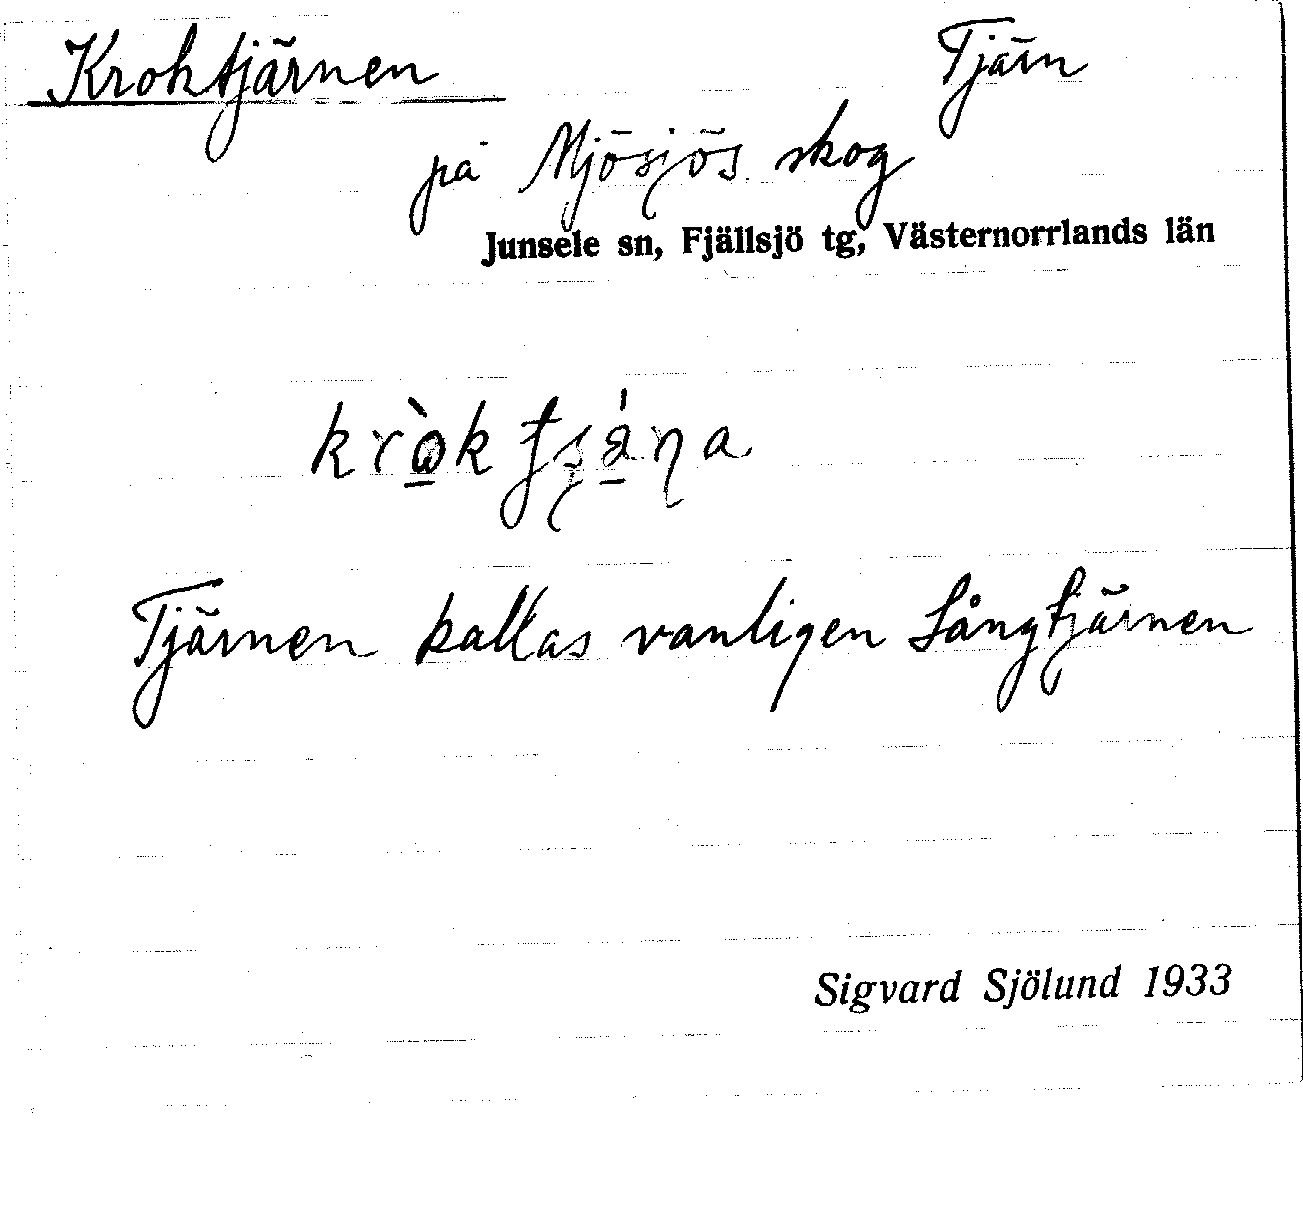 Kroktjärnen Tjärn
på Mjösjös skog
Junsele sn, Fjällsjö tg, Västernorrlands län
Tjärnen kallas vanligen Långtjärnen
Sigvard Sjölund 1933